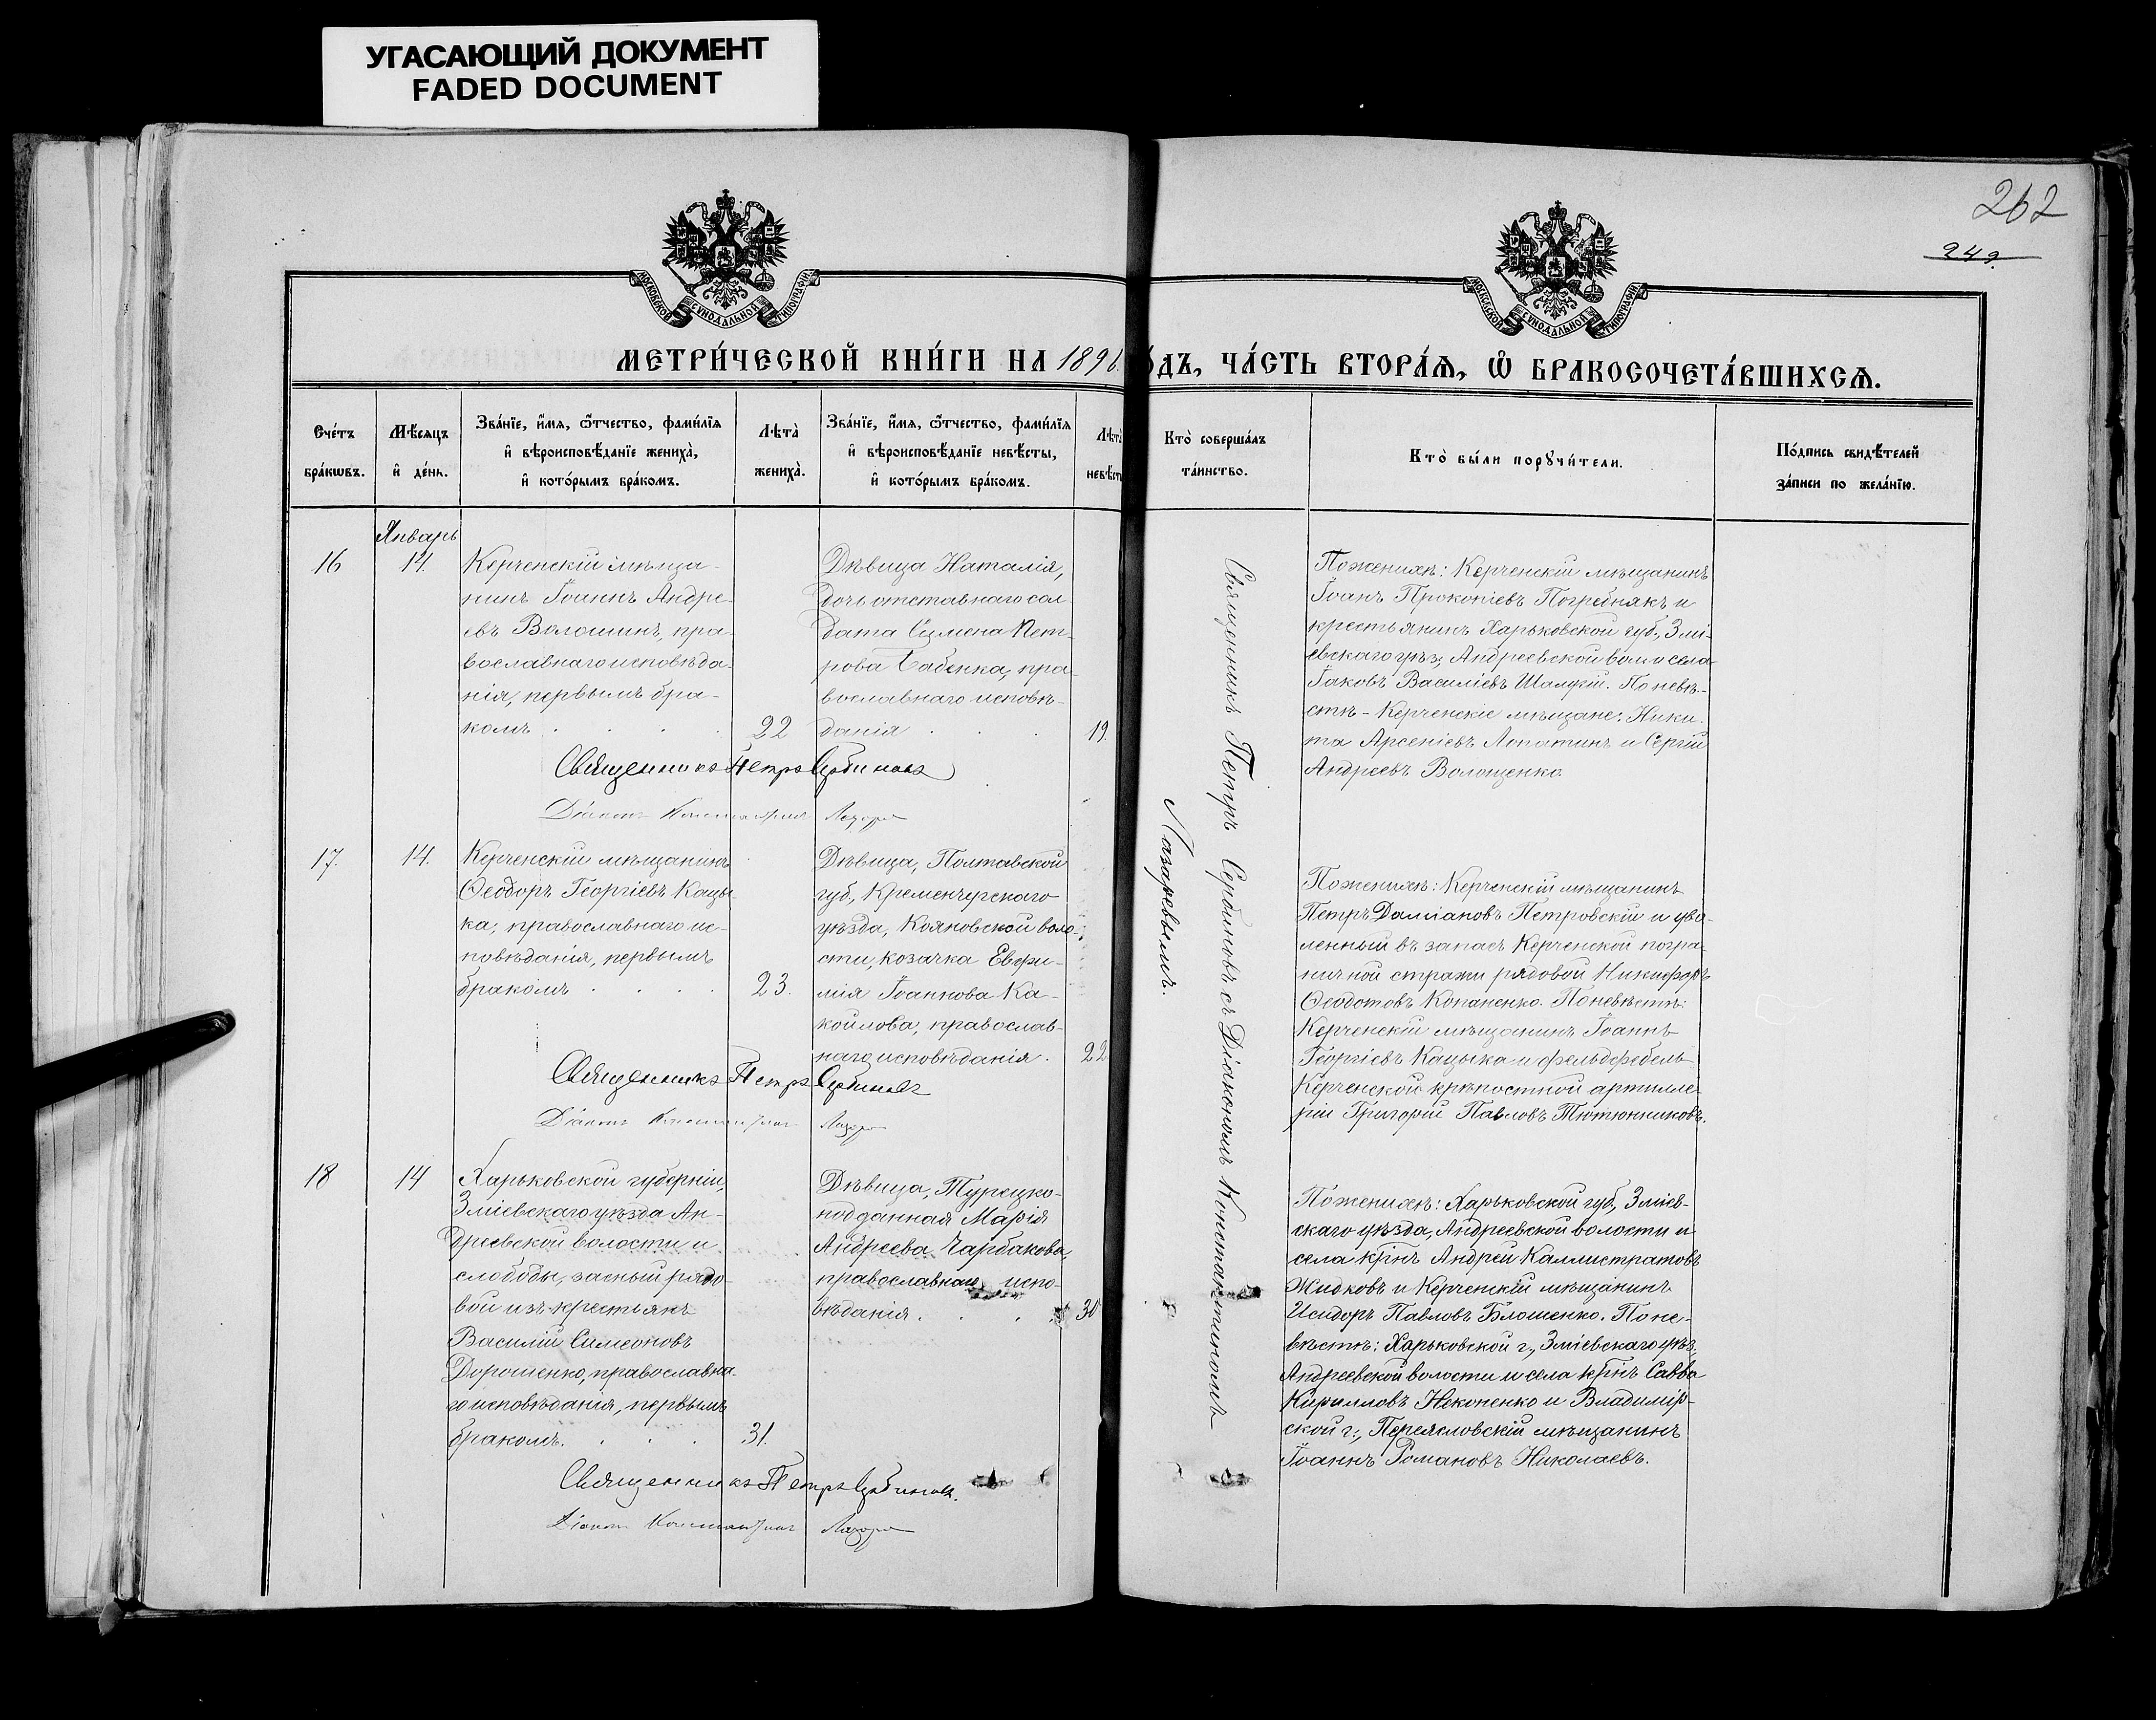 УГАСАЮЩИЙ ДОКУМЕНТ
FADED DOCUMENT
262
249.
МОСКОВСКОЙ СѴНОДАЛЬНОЙ ТИПОГРАФІИ
МОСКОВСКОЙ СѴНОДАЛЬНОЙ ТИПОГРАФІИ
МЕТРИ́ЧЕСКОЙ КНИ́ГИ НА 1896 ГО́ДЪ, ЧА́СТЬ ВТОРА́Ѧ, Ѽ БРАКОСОЧЕТА́ВШИХСѦ.
Сче́тъ
бра́кѡвъ.
Мѣ́сѧцъ
и҆ де́нь.
Зва́нїе, и҆́мѧ, ѻ҆́тчество, фами́лїѧ
и҆ вѣроисповѣ́данїе жениха̀,
и҆ кото́рымъ бра́комъ.
Лѣта̀
жениха̀.
Зва́нїе, и҆́мѧ, ѻ҆́тчество, фами́лїѧ
и҆ вѣроисповѣ́данїе невѣ́сты,
и҆ кото́рымъ бра́комъ.
Лѣта̀
невѣ́сты
Кто̀ соверша́лъ
та́инство.
Кто̀ бы́ли порꙋчи́тели.
По́дпись свидѣ́телей
за́писи по жела́нїю.
Январь
16
14.
Керченскій мѣща-
нинъ Іоаннъ Андре-
евъ Волошинъ, пра-
вославнаго исповѣда-
нія, первымъ бра-
комъ
22
Дѣвица Наталія,
дочь отставнаго сол-
дата Симеона Пет-
рова Бабенка, пра-
вославнаго исповѣ-
данія
19.
Священникъ Петръ Сербиновъ
Діаконъ Константинъ Лазаре
Поженихѣ: Керченскій мѣщанинъ
Іоанъ Прокопіевъ Погребнякъ и
крестьянинъ Харьковской губ., Змі-
евскаго уѣз., Андреевской вол. и села
Іаковъ Василіевъ Шалфій. По невѣ-
стѣ - Керченскіе мѣщане: Ники-
та Арсеніевъ Лопатинъ и Сергій
Андреевъ Волощенко.
17.
14.
Керченскій мѣщанинъ
Ѳеодоръ Георгіевъ Кацы-
ка, православнаго ис-
повѣданія, первымъ
бракомъ
23.
Дѣвица, Полтавской
губ., Кременчугскаго
уѣзда, Кояновской воло-
сти, козачка Евфи-
мія Іоаннова Ка-
койлова, православ-
наго исповѣданія.
22
Священникъ Петръ Сербиновъ
Діаконъ Константинъ Лазаре
Поженихѣ: Керченскій мѣщанинъ
Петръ Даміановъ Петровскій и уво-
ленный въ запасъ Керченской погра-
ничной стражи рядовой Никифоръ
Ѳеодотовъ Копаненко. Поневѣстѣ:
Керченскій мѣщанинъ Іоаннъ
Георгіевъ Кацыка и фельдфебель
Керченской крѣпостной артилле-
ріи Григорій Павловъ Тютюнниковъ.
18
14
Харьковской губерніи,
Зміевскаго уѣзда Ан-
дреевской волости и
слободы, запный рядо-
вой изъ крестьянъ
Василій Симеоновъ
Дорошенко, православна-
го исповѣданія, первымъ
бракомъ.
31.
Дѣвица, Турецко-
подданная Марія
Андреева Чарбакова,
православнаго испо-
вѣданія.
30
Священникъ Петръ Сербиновъ.
Діаконъ Константинъ Лазаре
Поженихѣ: Харьковской губ., Зміев-
скаго уѣзда, Андреевской волости и
села кр҃нъ Андрей Каллистратовъ
Жидковъ и Керченскій мѣщанинъ
Исидоръ Павловъ Блошенко. Поне-
вѣстѣ: Харьковской г., Зміевскаго уѣз.
Андреевской волости и села кр҃нъ Савва
Кирилловъ Некопенко и Владимір-
ской г., Переясловскій мѣщанинъ
Іоаннъ Романовъ Николаевъ.
Священникъ Петръ Сербиновъ съ Діакономъ Константиномъ
Лазаревымъ.